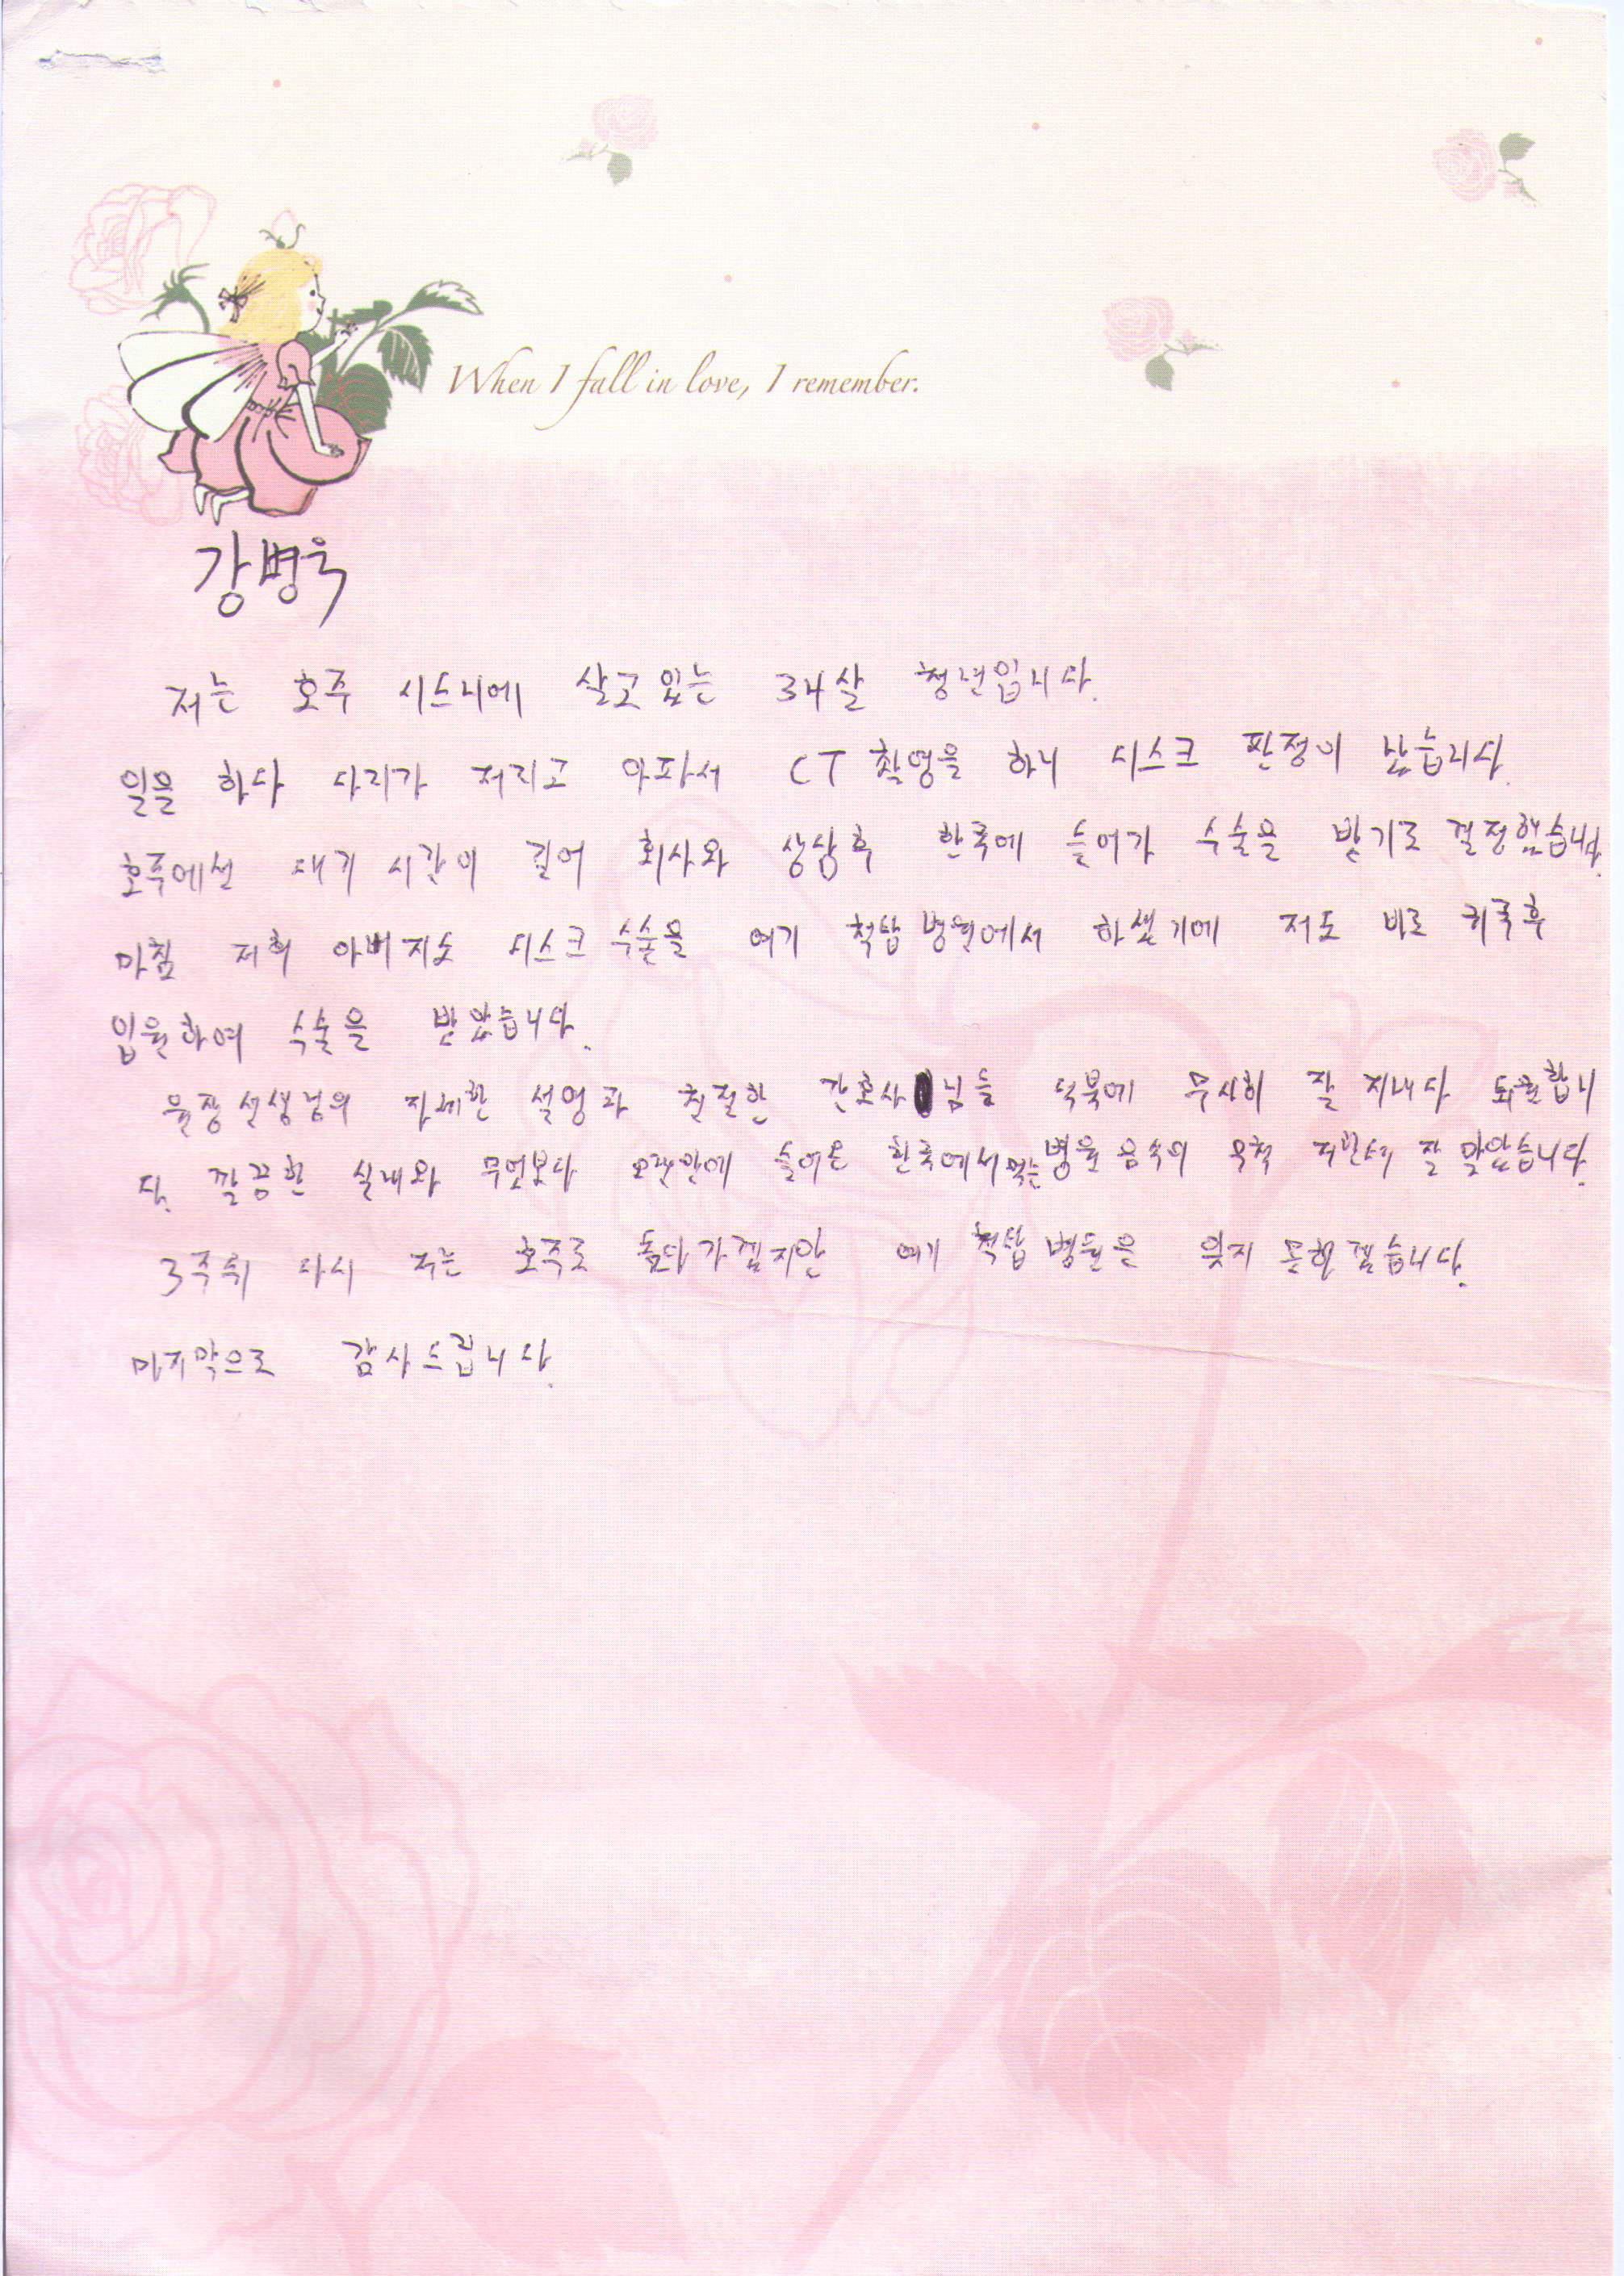 When I fall in love, I remember.
강병욱
저는 호주 시드니에 살고있는 34살 청년입니다.
일을 하다 다리가 저리고 아파서 CT 촬영을 하니 디스크 판정이 났습니다.
호주에선 대기 시간이 길어 회사와 상담후 한국에 들어가 수술을 받기로 결정했습니다.
마침 저희 아버지도 디스크 수술을 여기 척탑 병원에서 하셨기에 저도 바로 귀국후
입원하여 수술을 받았습니다.
원장선생님의 자세한 설명과 친절한 간호사 님들 덕북에 무사히 잘 지내다 퇴원합니
다. 깔끔한 실내와 무엇보다 오랜만에 들어온 한국에서 먹는 병원 음식이 무척 잘 맞았습니다.
3주뒤 다시 저는 호주로 돌아가겠지만 여기 척탑 병원을 잊지 못할겠습니다.
마지막으로 감사드립니다.